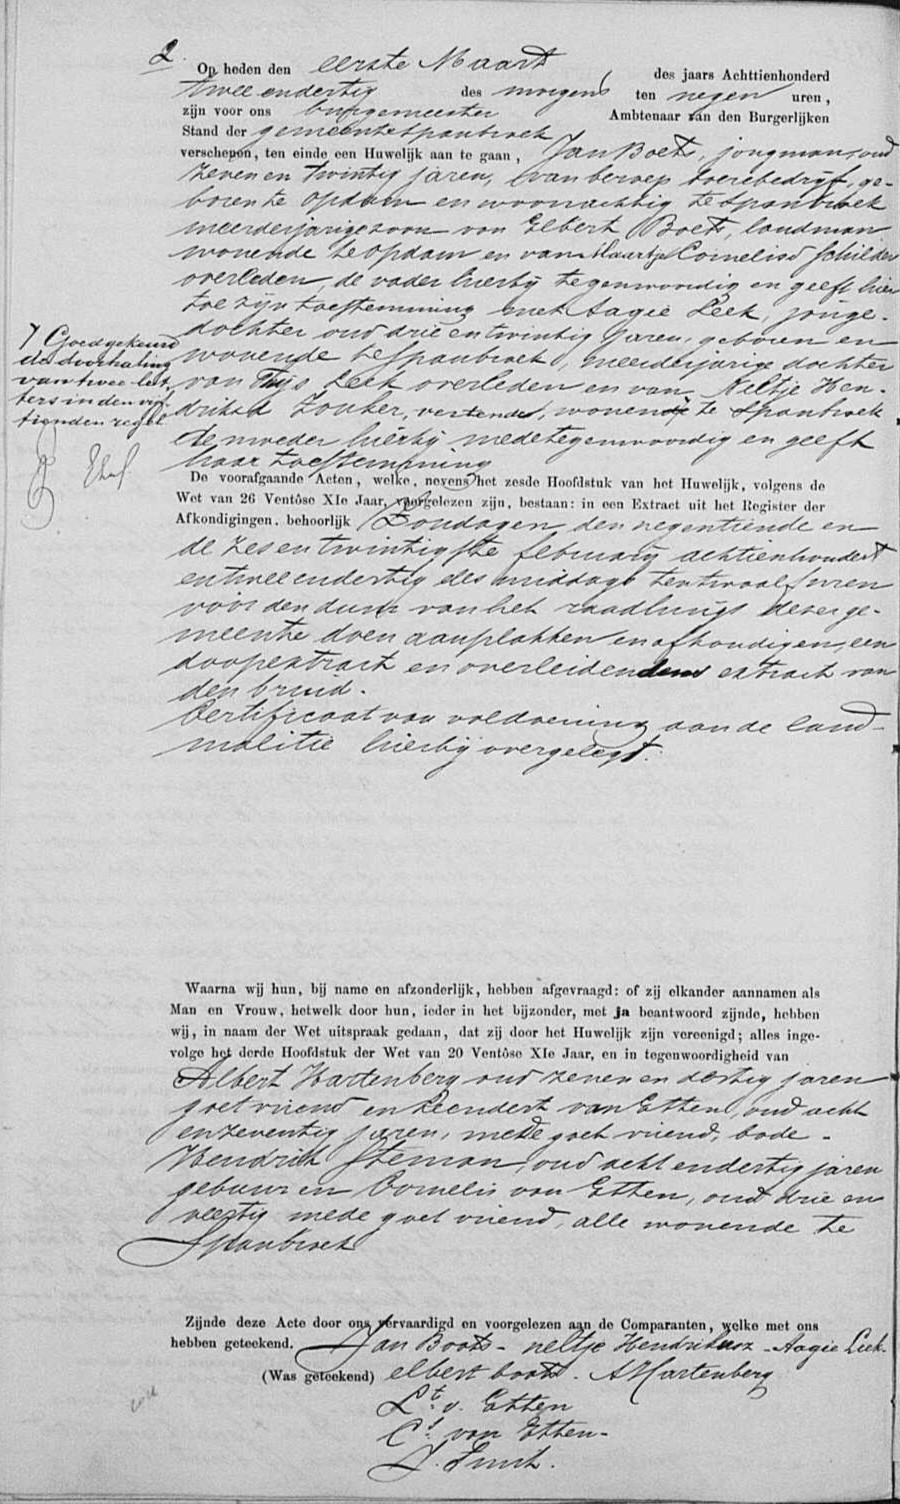 2.
Op heden den eerste Maart des jaars Achttienhonderd
twee endertig des morgens ten negen uren,
zijn voor ons burgemeester Ambtenaar van den Burgerlijken
Stand der gemeente Spanbroek
verschenen, ten einde een Huwelijk aan te gaan, Jan Boots, jongman, oud
zeven en twintig jaren, van beroep boerebedrijf, ge-
boren te Opdam en woonachtig te Spanbroek
meerderjarige zoon van Elbert Boots, landman
wonende te Opdam en van Maartje Cornelisd Schilder
overleden, de vader hierbij tegenwoordig en geeft hier
toe zijn toestemming met Aagie Leek, jonge-
dochter oud drie en twintig jaren, geboren en
wonende te Spanbroek, meerderjarige dochter
van Thijs Leek overleden en van Neltje Hen-
driksd Zonber, wonende te Spanbroek
de moeder hierbij mede tegenwoordig en geeft
haar toestemming
7 Goedgekeurd
de doorhaling
van twee let-
ters in den vijf
tienden regel
De voorafgaande Acten, welke, nevens het zesde Hoofdstuk van het Huwelijk, volgens de
Wet van 26 Ventôse XIe Jaar, voorgelezen zijn, bestaan: in een Extract uit het Register der
Afkondigingen, behoorlijk Zondagen, den negentiende en
de zes en twintigste february achtienhondert
en twee endertig des middags ten twaalf uren
voor den duur van het raadhuijs deser ge-
meente doen aanplakken en afkondigen, een
doopextract en overleidendens extract van
den bruid.
Certificaat van voldoening aan de land-
malitie hierbij overgelegt.
Waarna wij hun, bij name en afzonderlijk, hebben afgevraagd: of zij elkander aannamen als
Man en Vrouw, hetwelk door hun, ieder in het bijzonder, met ja beantwoord zijnde, hebben
wij, in naam der Wet uitspraak gedaan, dat zij door het Huwelijk zijn vereenigd; alles inge-
volge het derde Hoofdstuk der Wet van 20 Ventôse XIe Jaar, en in tegenwoordigheid van
Albert Hartenberg oud zeven en dertig jaren
goet vriend en Leendert van Etten, oud acht
en zeventig jaren, mede goet vriend, bode -
Hendrik Steman, oud acht endertig jaren
gebuur en Cornelis van Etten, oud drie en
veertig mede goet vriend, alle wonende te
Spanbroek
Zijnde deze Acte door ons vervaardigd en voorgelezen aan de Comparanten, welke met ons
hebben geteekend. Jan Boots - neltje Hendriks - Aagie Leek.
(Was geteekend) elbert boots. A Hartenberg
Lt. v. Etten
Cs. van Etten -